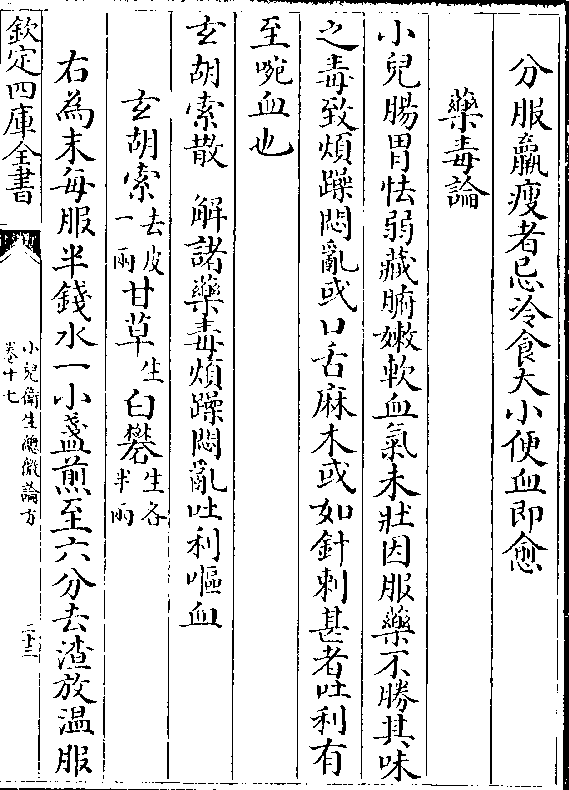 分服羸瘦者忌冷食大小便血即愈
藥毒論
小兒腸胃怯弱藏腑嫩軟血氣未壯因服藥不勝其味
之毒致煩躁悶亂或口舌麻木或如針刺甚者吐利有
至㖞血也
玄胡索散 解諸藥毒煩躁悶亂吐利嘔血
玄胡索去皮一兩甘草生白礬生各半兩
右為末每服半錢水一小盞煎至六分去渣放温服
欽定四庫全書
小兒衛生總微論方
卷十七
二十三